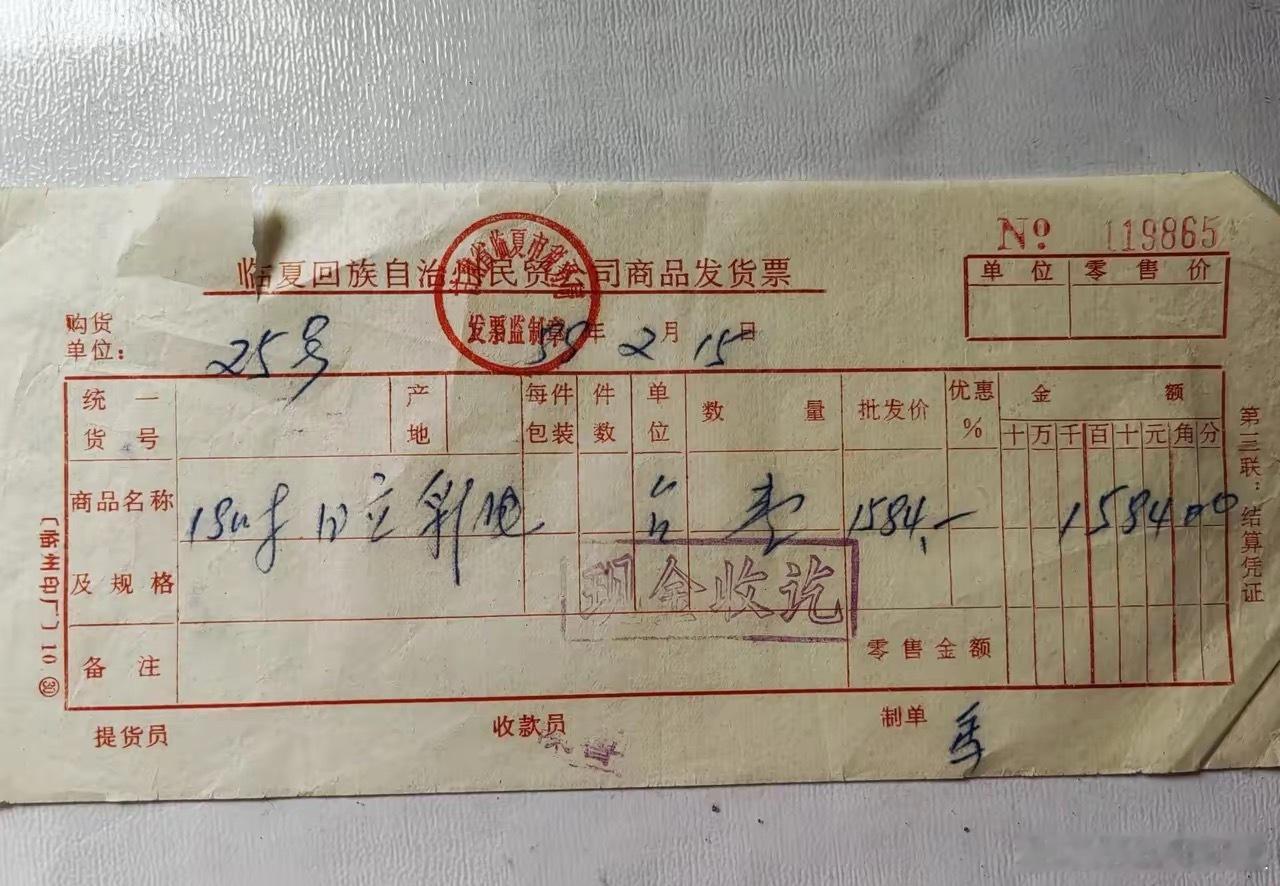 No 119865
临夏回族自治州民贸公司商品发货票
甘肃省临夏市税务局
发票监制章
单位 零售价
购货单位： 25号
年 2 月 15 日
统一货号 产地 每件包装 件数 单位 数量 批发价 优惠% 金额
十 万 千 百 十 元 角 分
商品名称及规格 日立彩电 台 壹 1584.— 1584 00
现金收讫
备注 零售金额
提货员 收款员 制单
第三联：结算凭证